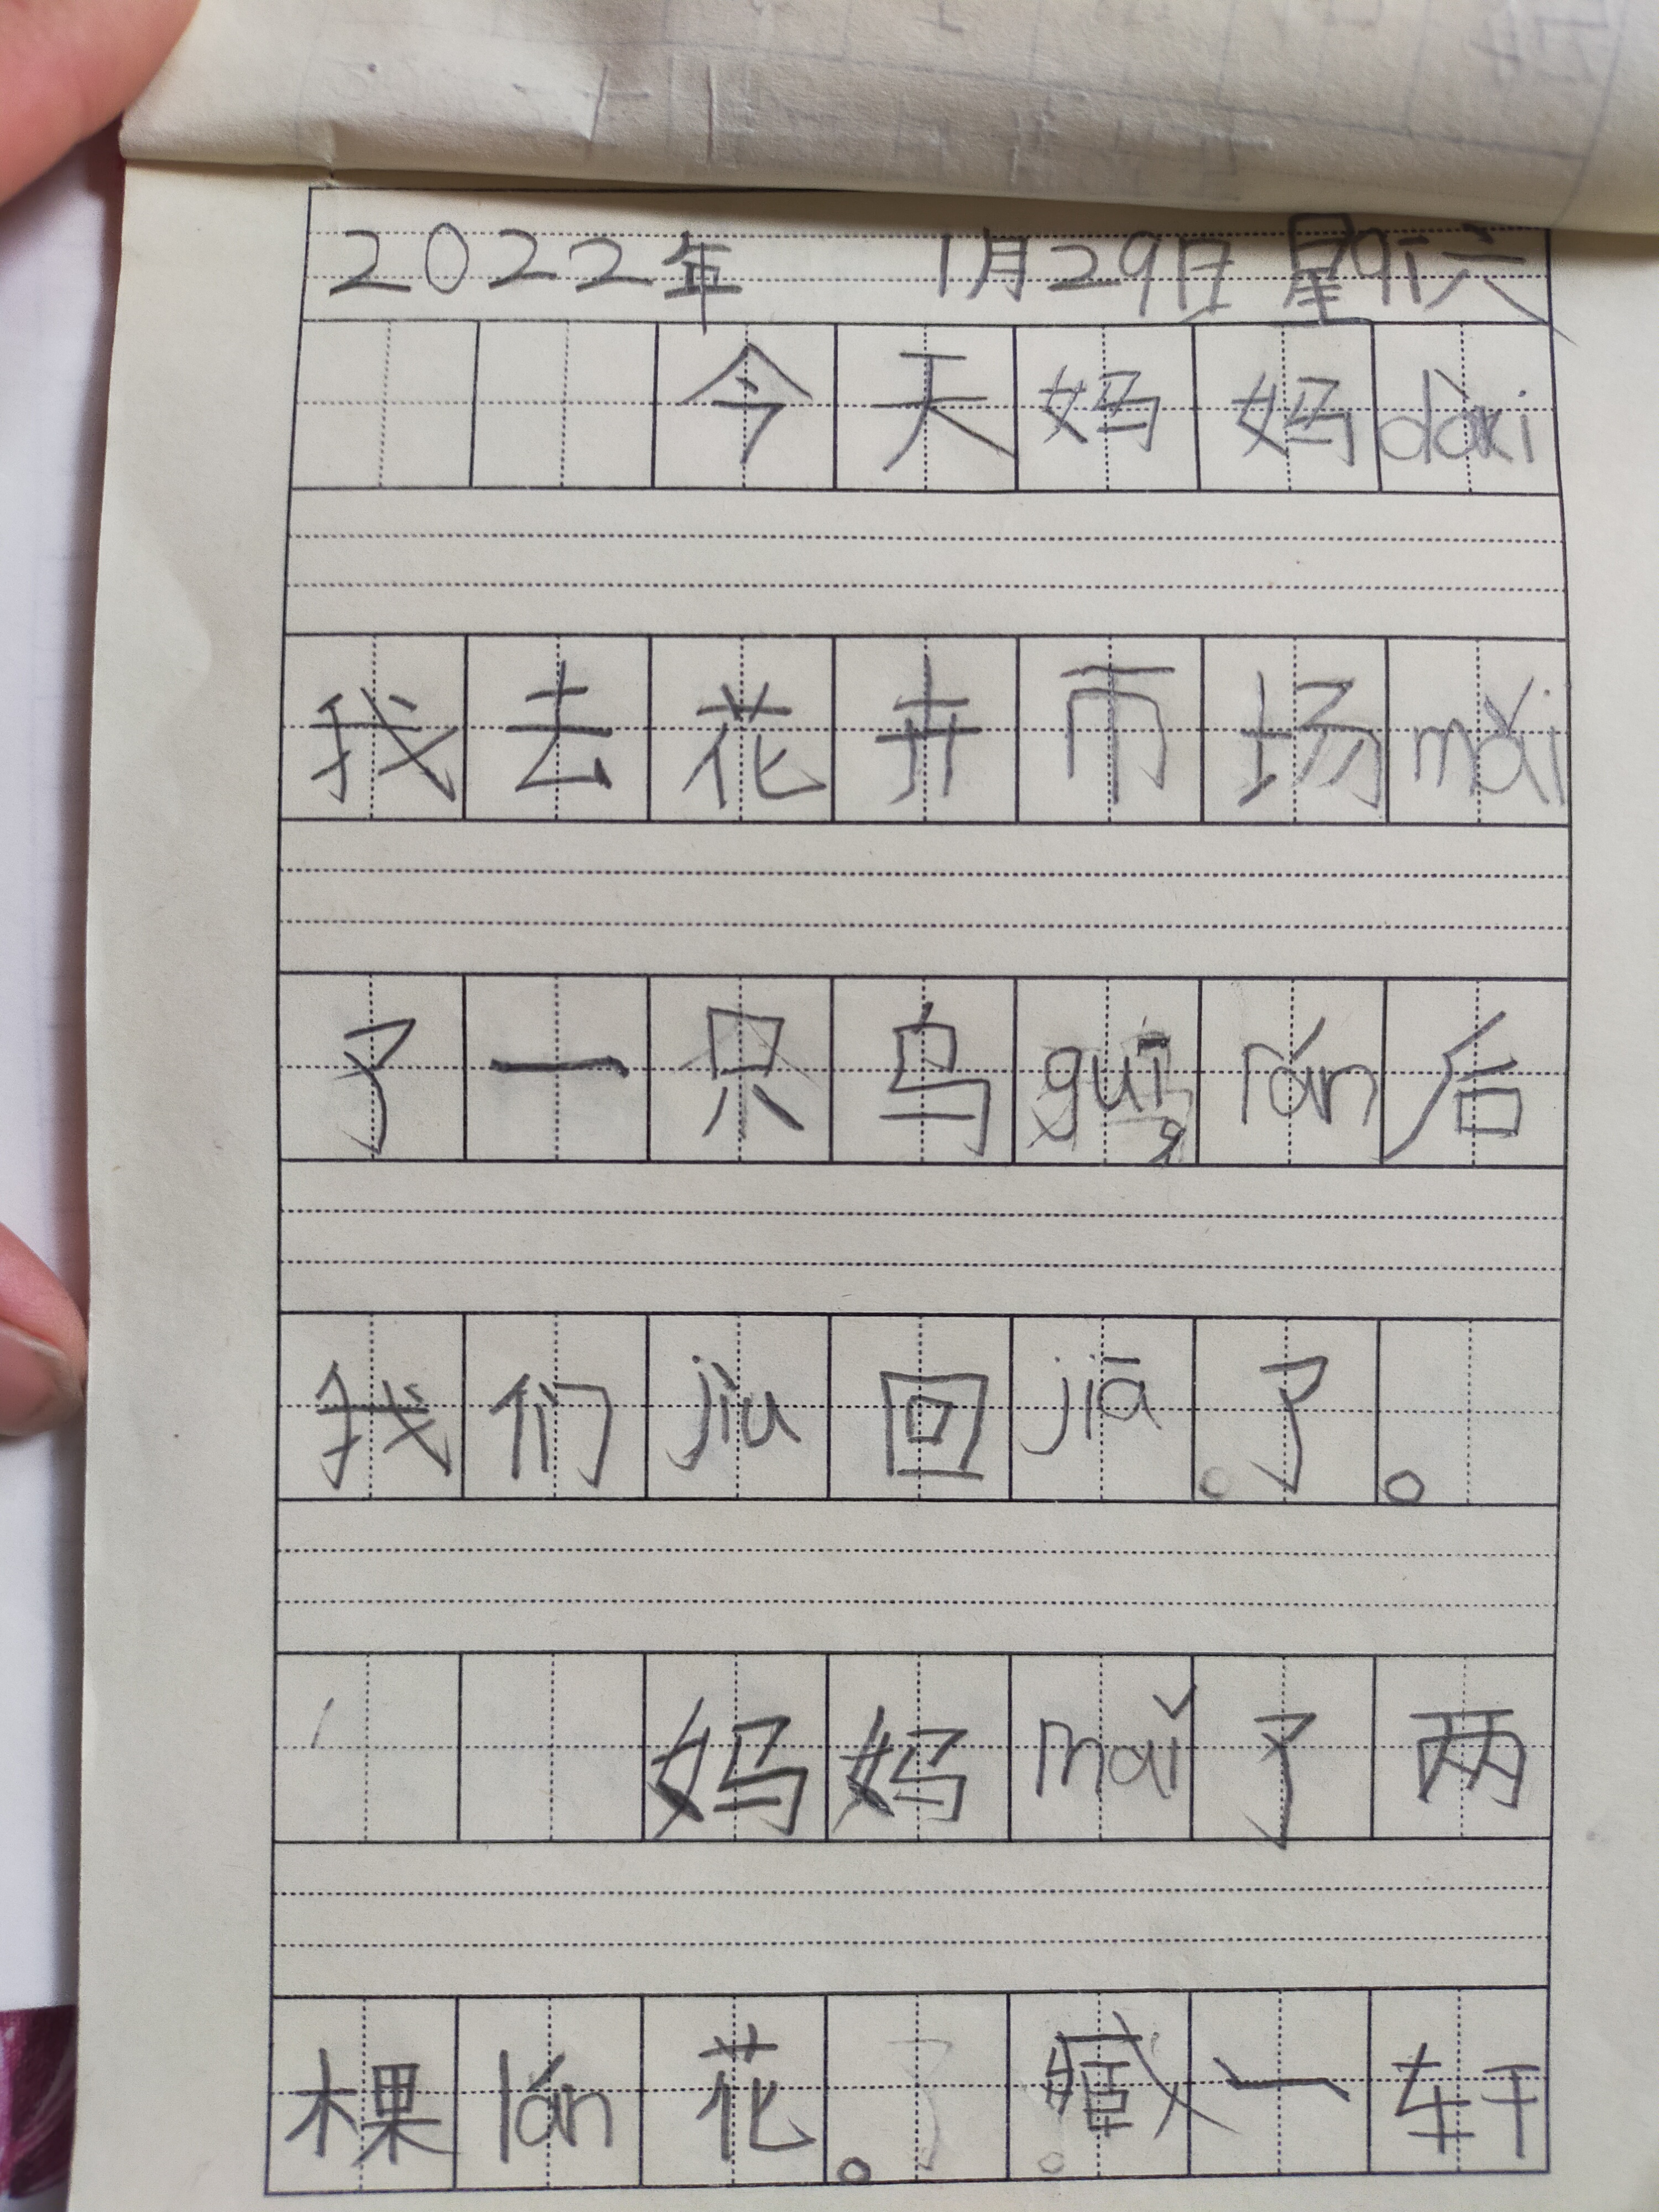 2022年 1月29日 星qi六
今天妈妈dài
我去花卉市场mǎi
了一只乌guī rán后
我们jiù回jiā了。
妈妈mǎi了两
棵lán花。臧一轩